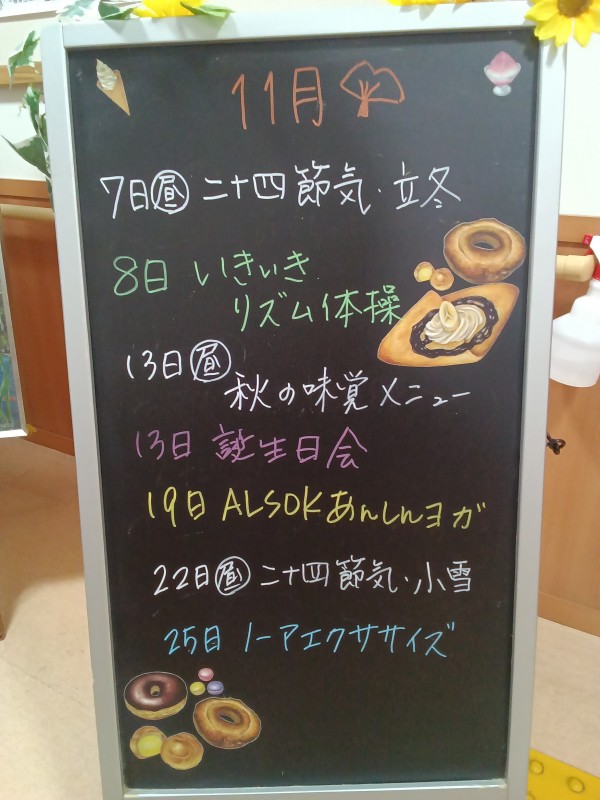 11月
7日昼 二十四節気・立冬
8日 いきいき
リズム体操
13日昼
秋の味覚メニュー
13日 誕生日会
19日 ALSOKあんしんヨガ
22日昼 二十四節気・小雪
25日 ノーアエクササイズ